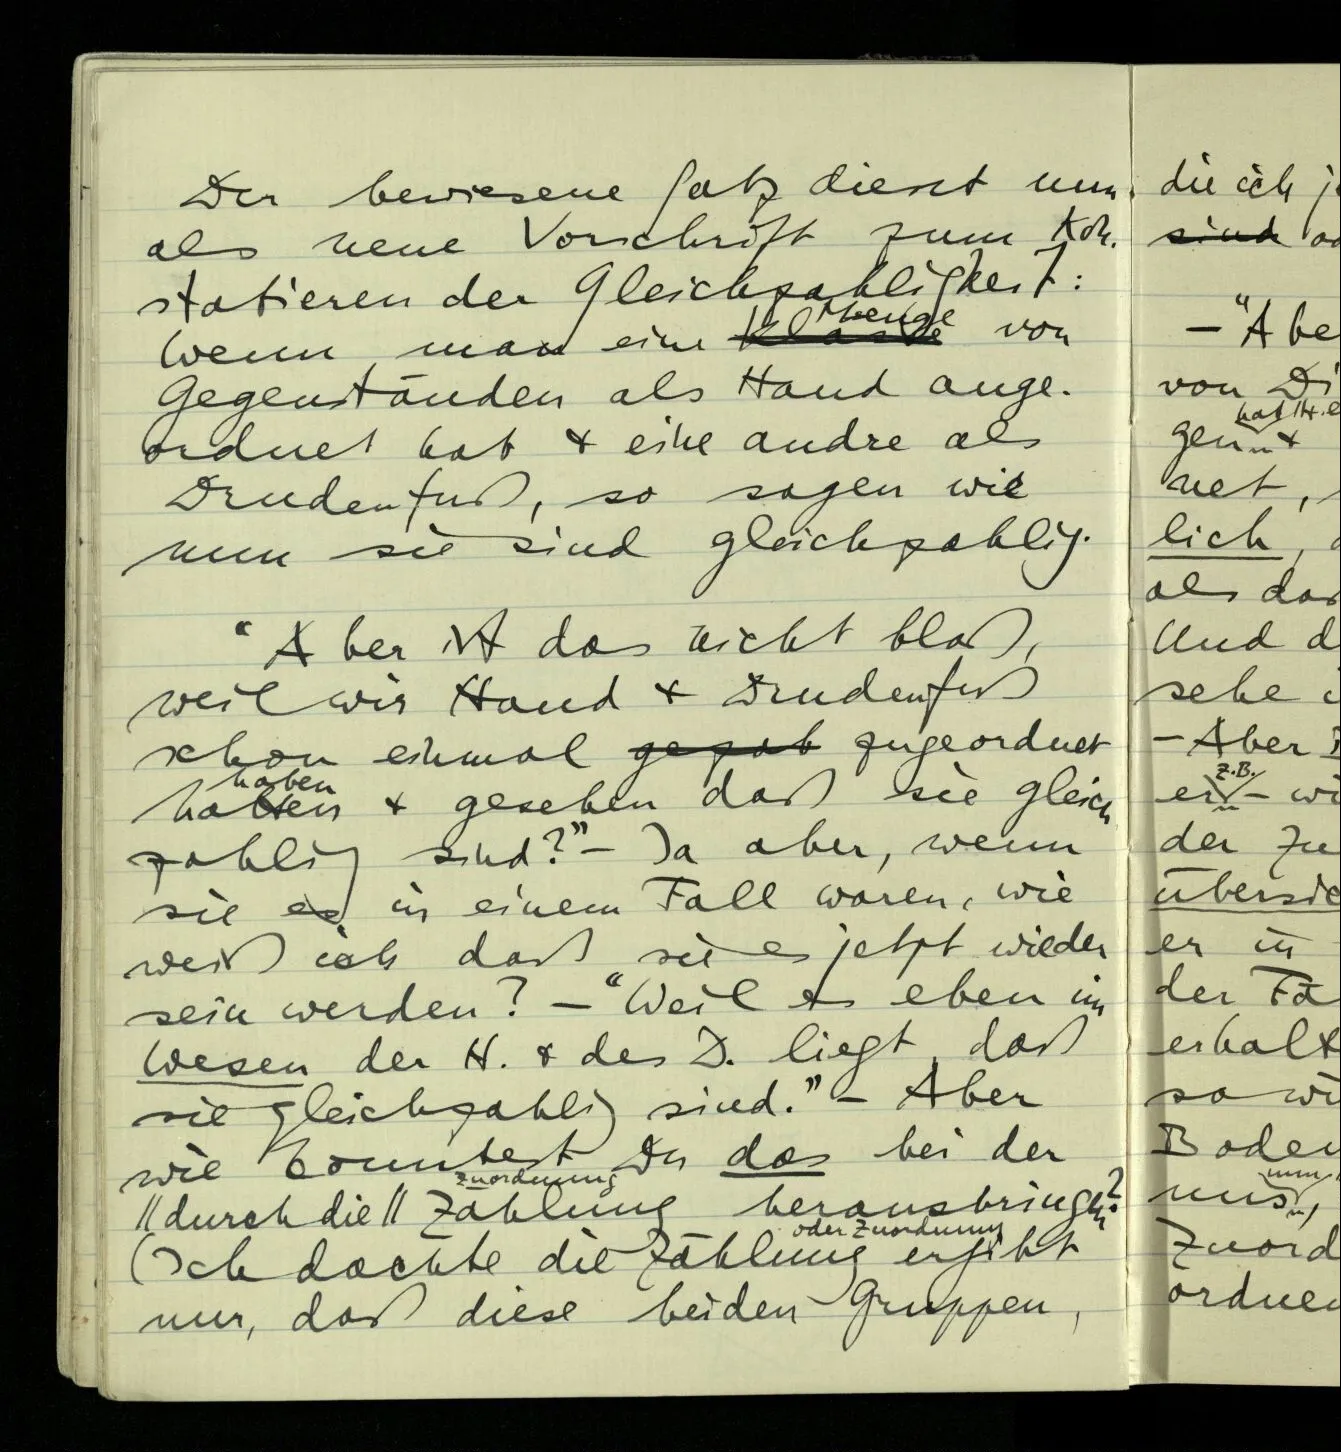 Der bewiesene Satz dient nun
als neue Vorschrift zum Kon-
statieren der Gleichzahligkeit:
Wenn man eine Klasse Menge von
Gegenständen als Hand ange-
ordnet hat & eine andre als
Drudenfuß, so sagen wir
nun sie sind gleichzahlig.
“Aber ist das nicht bloß,
weil wir Hand & Drudenfuß
schon einmal zugeordnet
haben
hatten & gesehen daß sie gleich
zahlig sind?” – Ja aber, wenn
sie es in einem Fall waren, wie
weiß ich daß sie es jetzt wieder
sein werden? – “Weil es eben im
Wesen der H. & des D. liegt, daß
sie gleichzahlig sind.” – Aber
wie konntest Du das bei der
Zuordnung
//durch die// Zählung herausbringen?
oder Zuordnung
(Ich dachte die Zählung ergibt
nur, daß diese beiden Gruppen,
die ich
sind
– “Abe
von Di
gen &
net,
lich,
als daß
Und d
sehe
– Aber
z.B.
er – wi
der Zu
übersic
er in
der Fä
erhalt
so wi
Boden
uns,
Zuord
ordnen